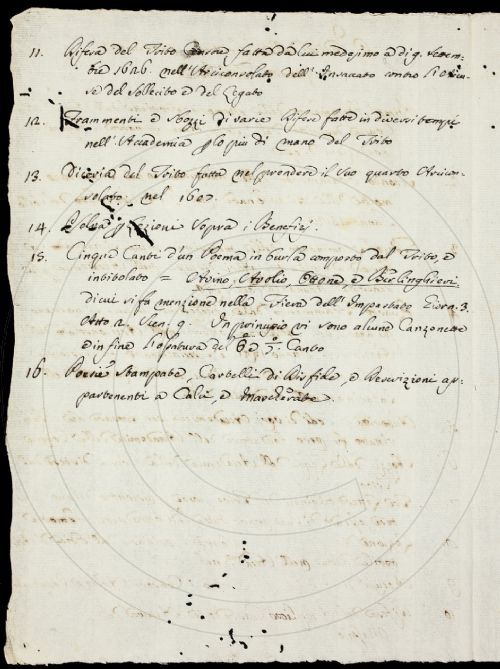 11. Difesa del Trito Accusa fatta da lui medesimo a dì 9. Settem-
bre 1626. nell'Arciconsolato dell'Insaccato contro l'accu-
se del Sollecito e del Legato
12. Frammenti e Sbozzi di varie Difese fatte in diversi tempi
nell'Accademia p lo più di mano del Trito
13. Diceria del Trito fatta nel prendere il Suo quarto Arcicon-
solato nel 1607.
14. p Lezioni Sopra i Benefizj.
15. Cinque Canti d'un Poema in burla composto dal Trito, e
intitolato = Avino, Avolio, Ottone, e Berlinghieri
di cui si fa menzione nella Fiera dell'Impastato Giorn. 3.
Atto 2. Scen. 9. In principio vi sono alcune Canzonette
e in fine l'ossatura del 6º e 7º Canto
16. Poesie Stampate, Cartelli di Disfide, e Descrizioni ap-
partenenti a Calci, e Mascherate.